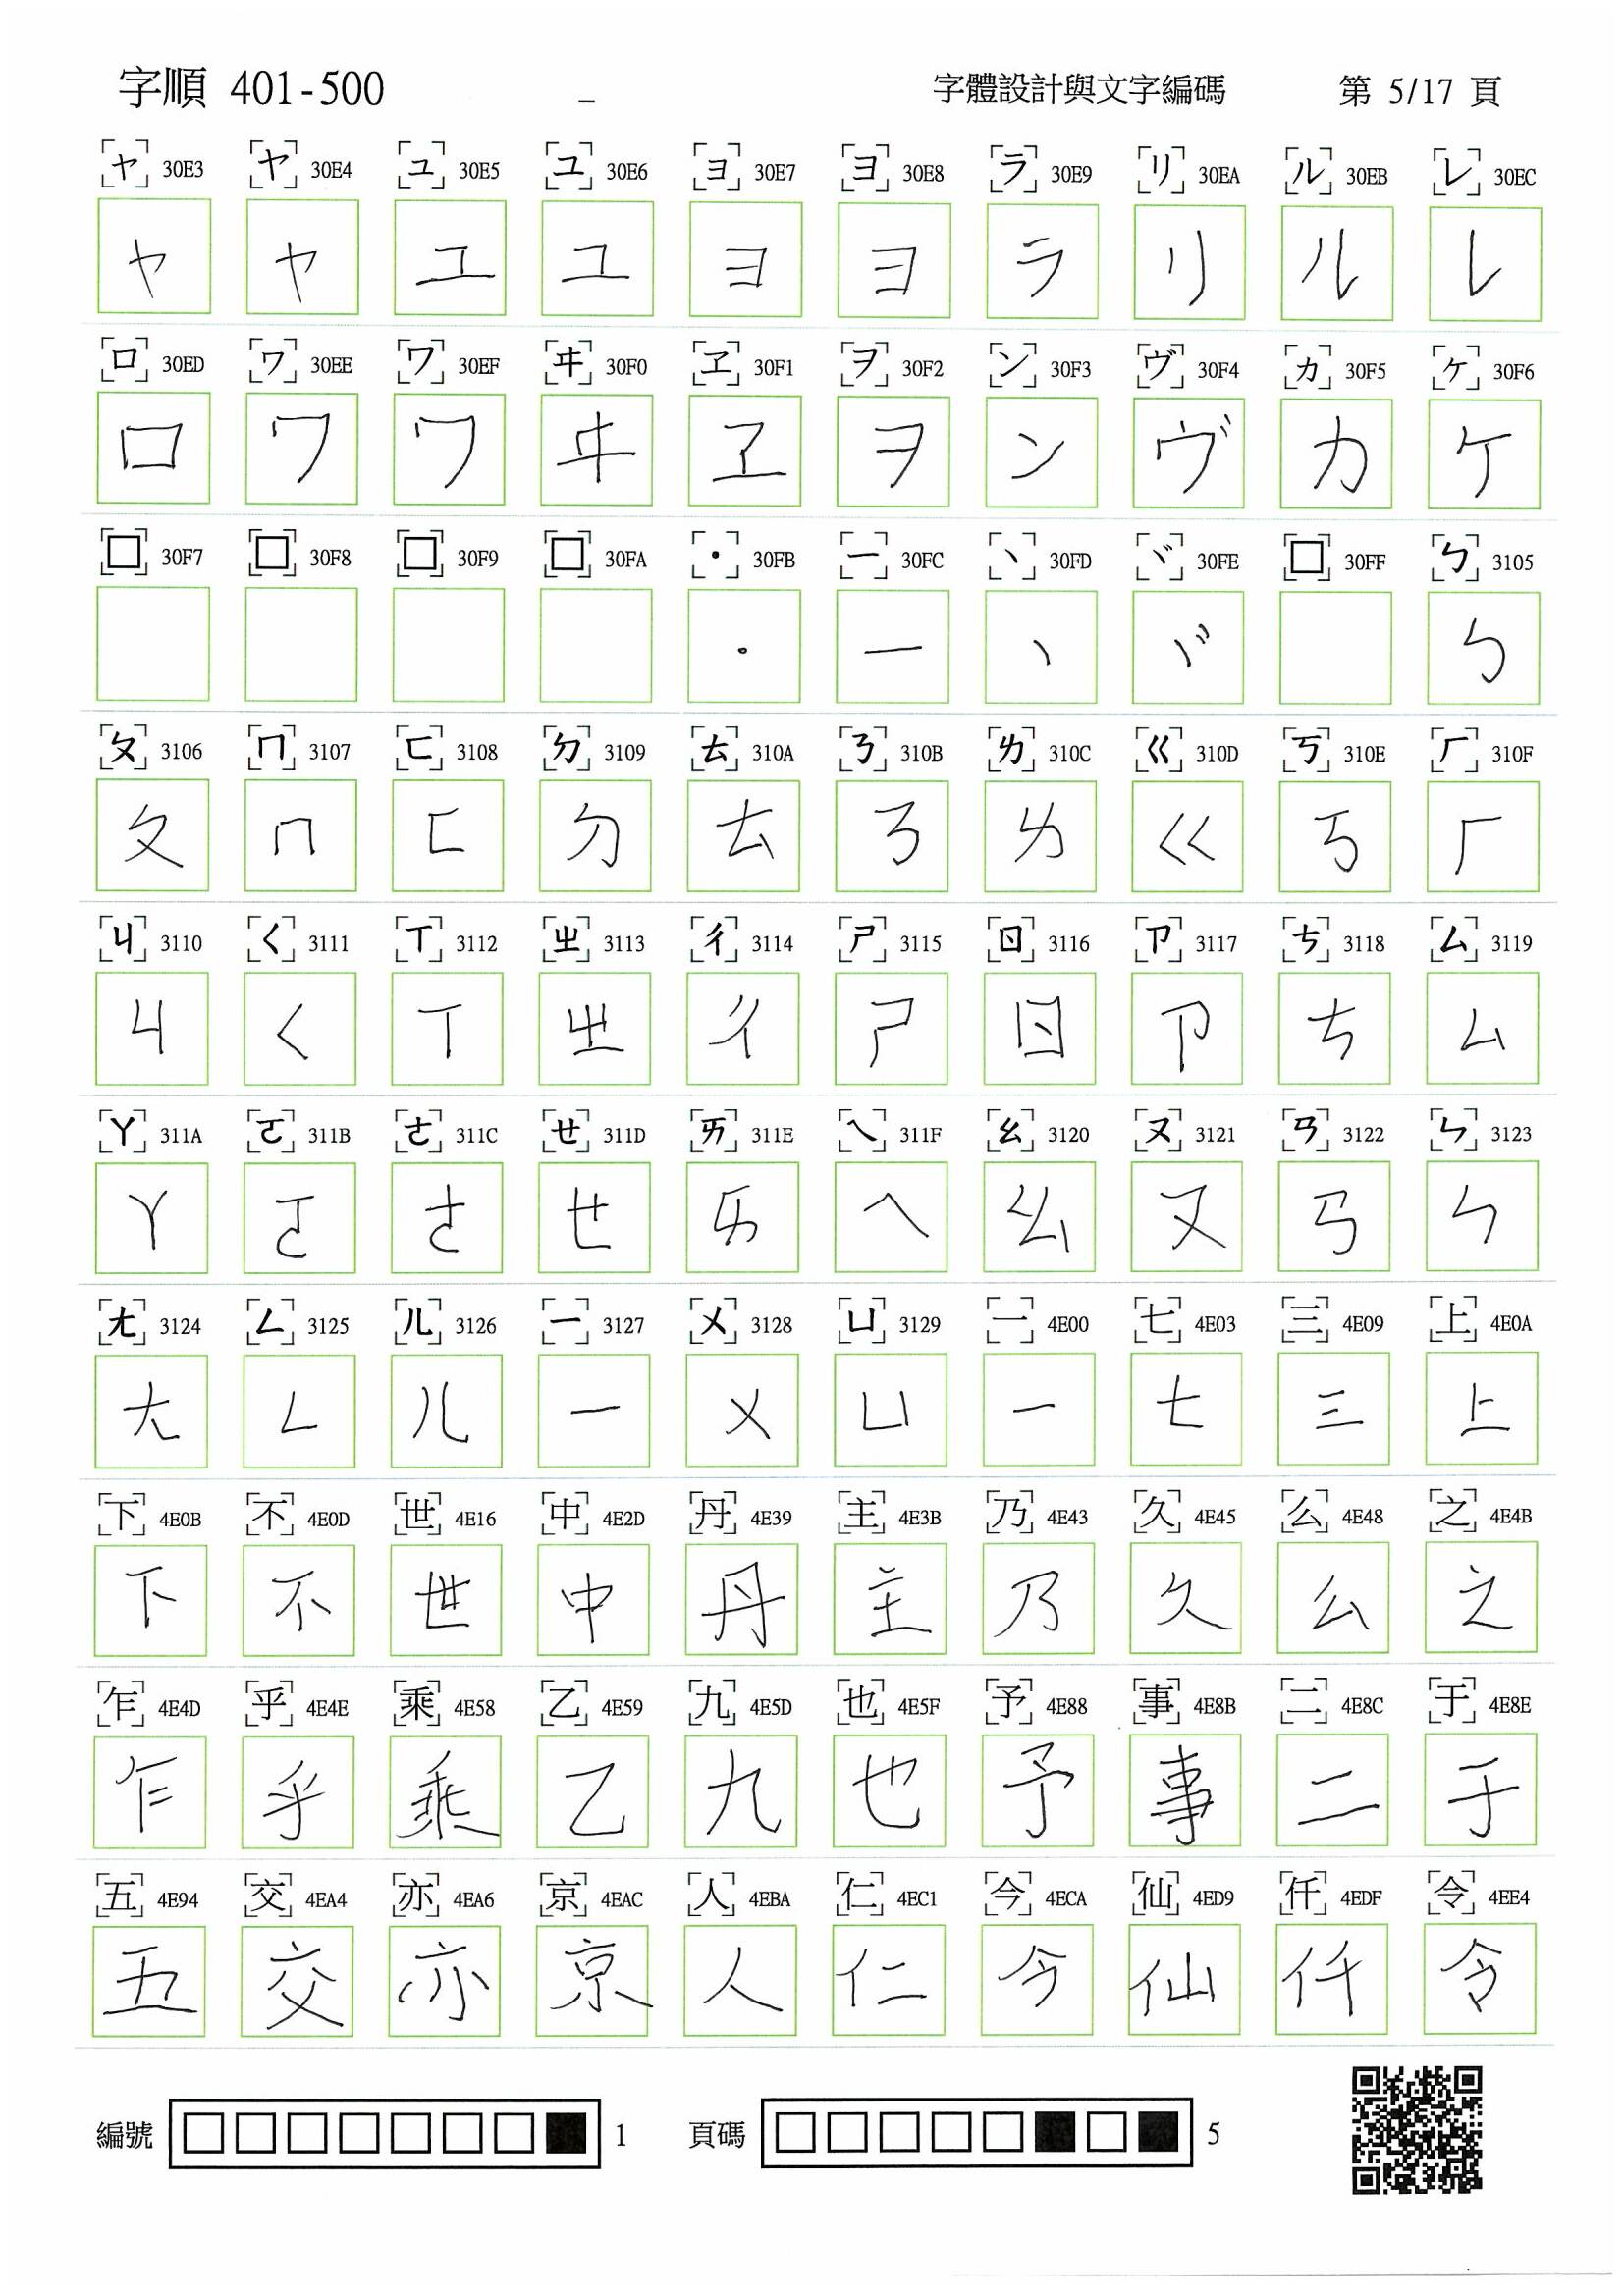 字順 401-500 _ 字體設計與文字編碼 第 5/17 頁
ャ 30E3 ヤ 30E4 ュ 30E5 ユ 30E6 ョ 30E7 ヨ 30E8 ラ 30E9 リ 30EA ル 30EB レ 30EC
ャ ヤ ュ ユ ョ ヨ ラ リ ル レ
ロ 30ED ヮ 30EE ワ 30EF ヰ 30F0 ヱ 30F1 ヲ 30F2 ン 30F3 ヴ 30F4 ヵ 30F5 ヶ 30F6
ロ ヮ ワ ヰ ヱ ヲ ン ヴ ヵ ヶ
□ 30F7 □ 30F8 □ 30F9 □ 30FA ・ 30FB ー 30FC ヽ 30FD ヾ 30FE □ 30FF ㄅ 3105
・ ー ヽ ヾ ㄅ
ㄆ 3106 ㄇ 3107 ㄈ 3108 ㄉ 3109 ㄊ 310A ㄋ 310B ㄌ 310C ㄍ 310D ㄎ 310E ㄏ 310F
ㄆ ㄇ ㄈ ㄉ ㄊ ㄋ ㄌ ㄍ ㄎ ㄏ
ㄐ 3110 ㄑ 3111 ㄒ 3112 ㄓ 3113 ㄔ 3114 ㄕ 3115 ㄖ 3116 ㄗ 3117 ㄘ 3118 ㄙ 3119
ㄐ ㄑ ㄒ ㄓ ㄔ ㄕ ㄖ ㄗ ㄘ ㄙ
ㄚ 311A ㄛ 311B ㄜ 311C ㄝ 311D ㄞ 311E ㄟ 311F ㄠ 3120 ㄡ 3121 ㄢ 3122 ㄣ 3123
ㄚ ㄛ ㄜ ㄝ ㄞ ㄟ ㄠ ㄡ ㄢ ㄣ
ㄤ 3124 ㄥ 3125 ㄦ 3126 ㄧ 3127 ㄨ 3128 ㄩ 3129 一 4E00 七 4E03 三 4E09 上 4E0A
ㄤ ㄥ ㄦ ㄧ ㄨ ㄩ 一 七 三 上
下 4E0B 不 4E0D 世 4E16 中 4E2D 丹 4E39 主 4E3B 乃 4E43 久 4E45 么 4E48 之 4E4B
下 不 世 中 丹 主 乃 久 么 之
乍 4E4D 乎 4E4E 乘 4E58 乙 4E59 九 4E5D 也 4E5F 予 4E88 事 4E8B 二 4E8C 于 4E8E
乍 乎 乘 乙 九 也 予 事 二 于
五 4E94 交 4EA4 亦 4EA6 京 4EAC 人 4EBA 仁 4EC1 今 4ECA 仙 4ED9 仟 4EDF 令 4EE4
五 交 亦 京 人 仁 今 仙 仟 令
編號 □□□□□□□■ 1 頁碼 □□□□□■□■ 5